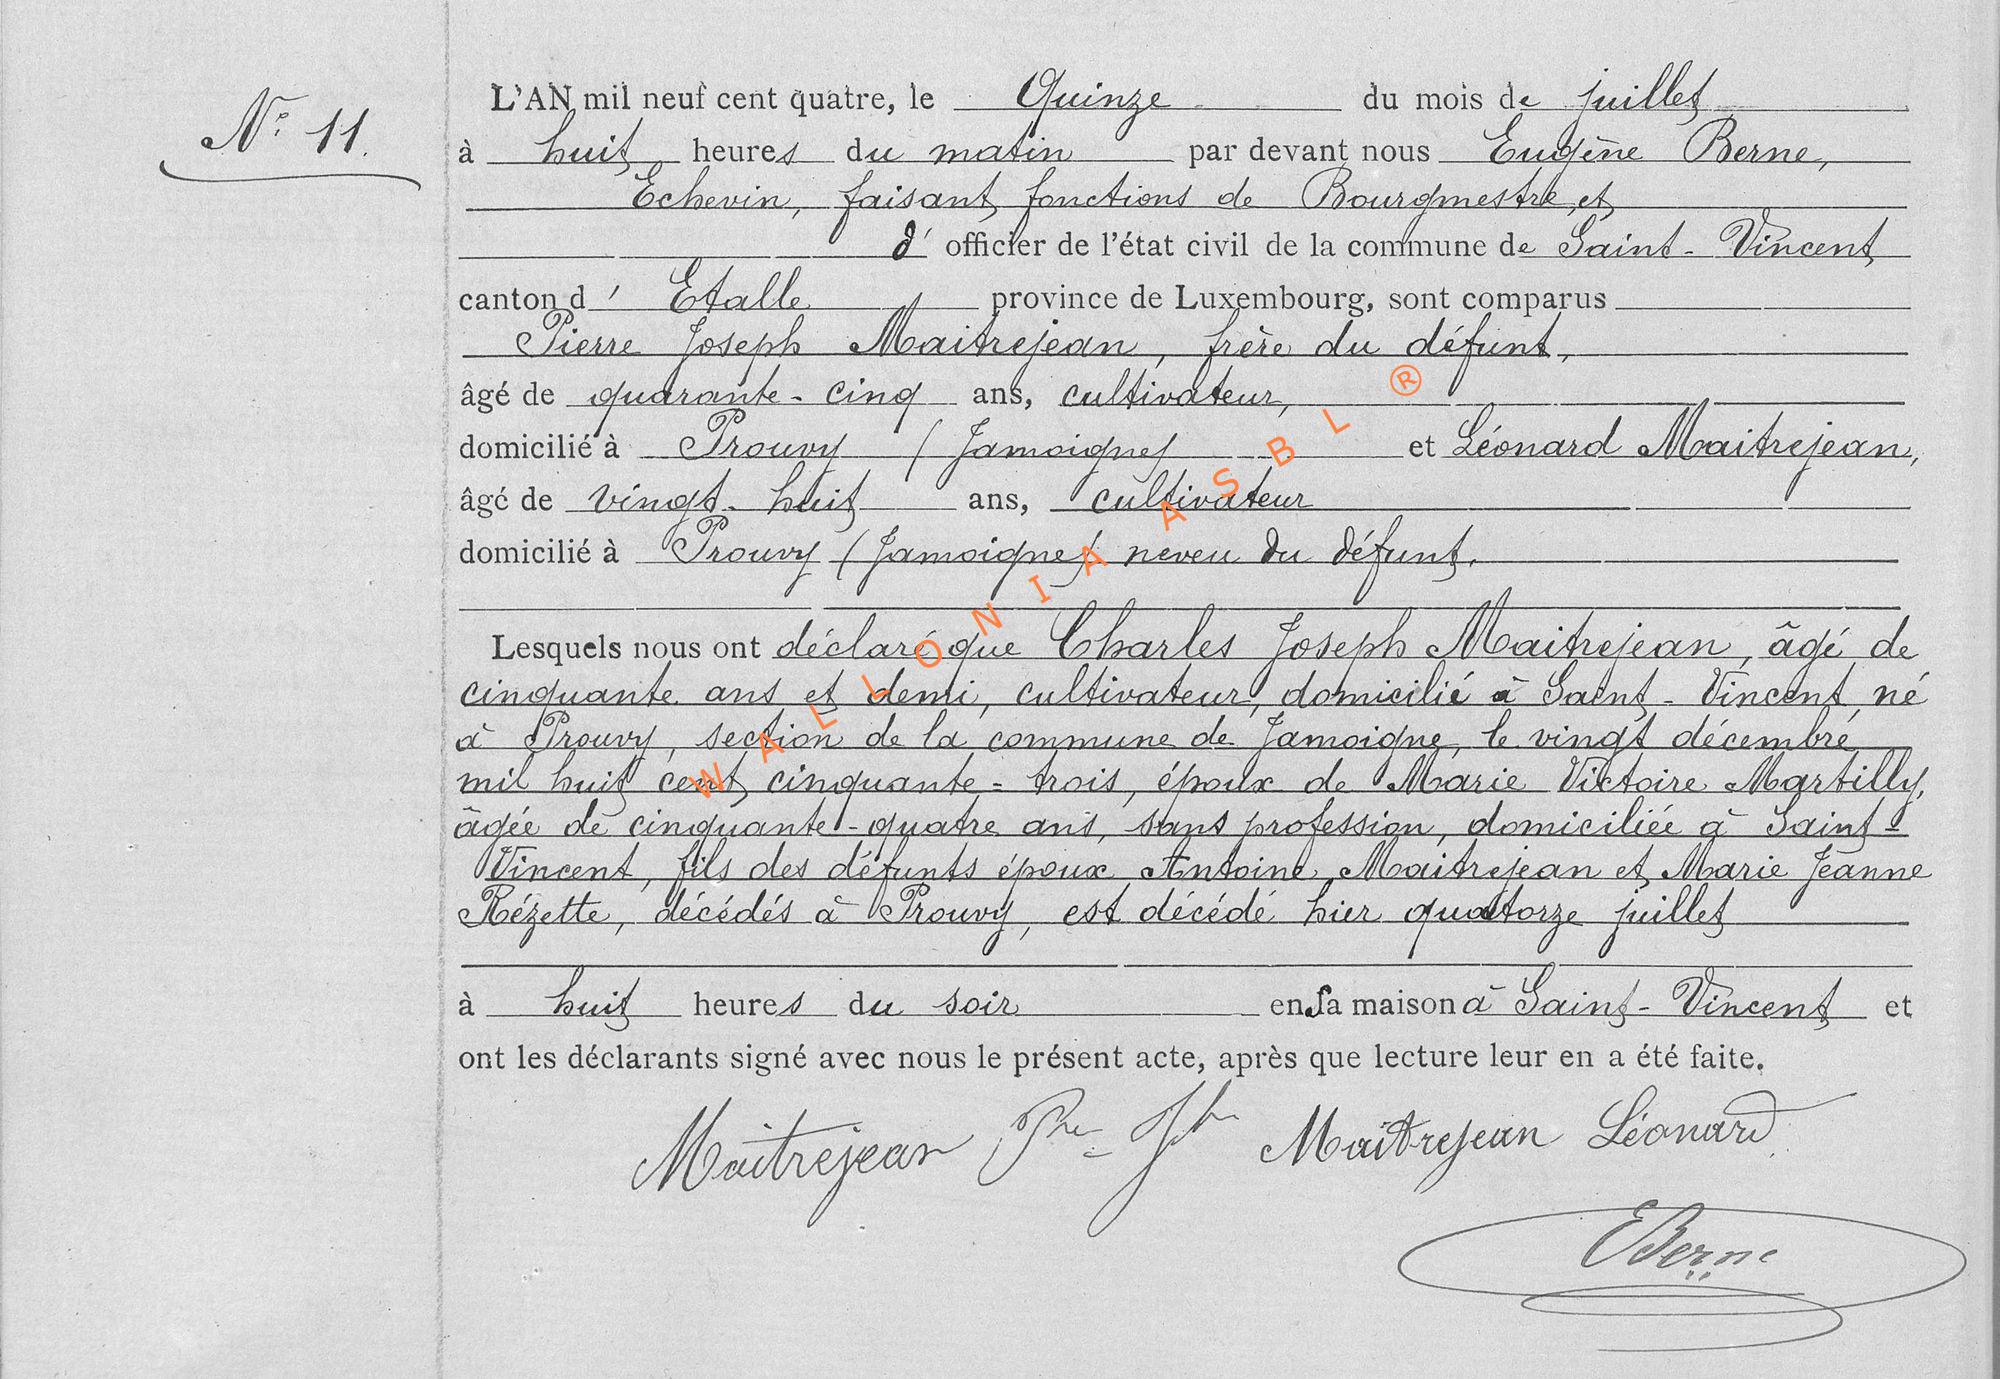 N° 11.
L'AN mil neuf cent quatre, le Quinze du mois de juillet
à huit heures du matin par devant nous Eugène Berne,
Echevin, faisant fonctions de Bourgmestre, et
d' officier de l'état civil de la commune de Saint-Vincent
canton d' Etalle province de Luxembourg, sont comparus
Pierre Joseph Maitrejean, frère du défunt,
âgé de quarante-cinq ans, cultivateur,
domicilié à Prouvy (Jamoigne) et Léonard Maitrejean,
âgé de vingt-huit ans, cultivateur
domicilié à Prouvy (Jamoigne) neveu du défunt.
Lesquels nous ont déclaré que Charles Joseph Maitrejean, âgé de
cinquante ans et demi, cultivateur, domicilié à Saint-Vincent, né
à Prouvy, section de la commune de Jamoigne, le vingt décembre
mil huit cent cinquante-trois, époux de Marie Victoire Martilly,
âgée de cinquante-quatre ans, sans profession, domiciliée à Saint-
Vincent, fils des défunts époux Antoine Maitrejean et Marie Jeanne
Rézette, décédés à Prouvy, est décédé hier quatorze juillet
à huit heures du soir en sa maison à Saint-Vincent et
ont les déclarants signé avec nous le présent acte, après que lecture leur en a été faite.
Maitrejean Pre Jh Maîtrejean Léonard
EBerne
WALLONIA ASBL ®